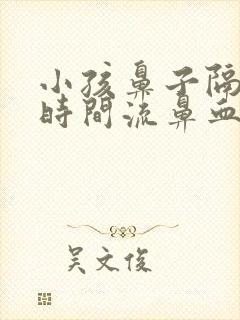 小孩鼻子隔
時間流鼻血
吴文俊